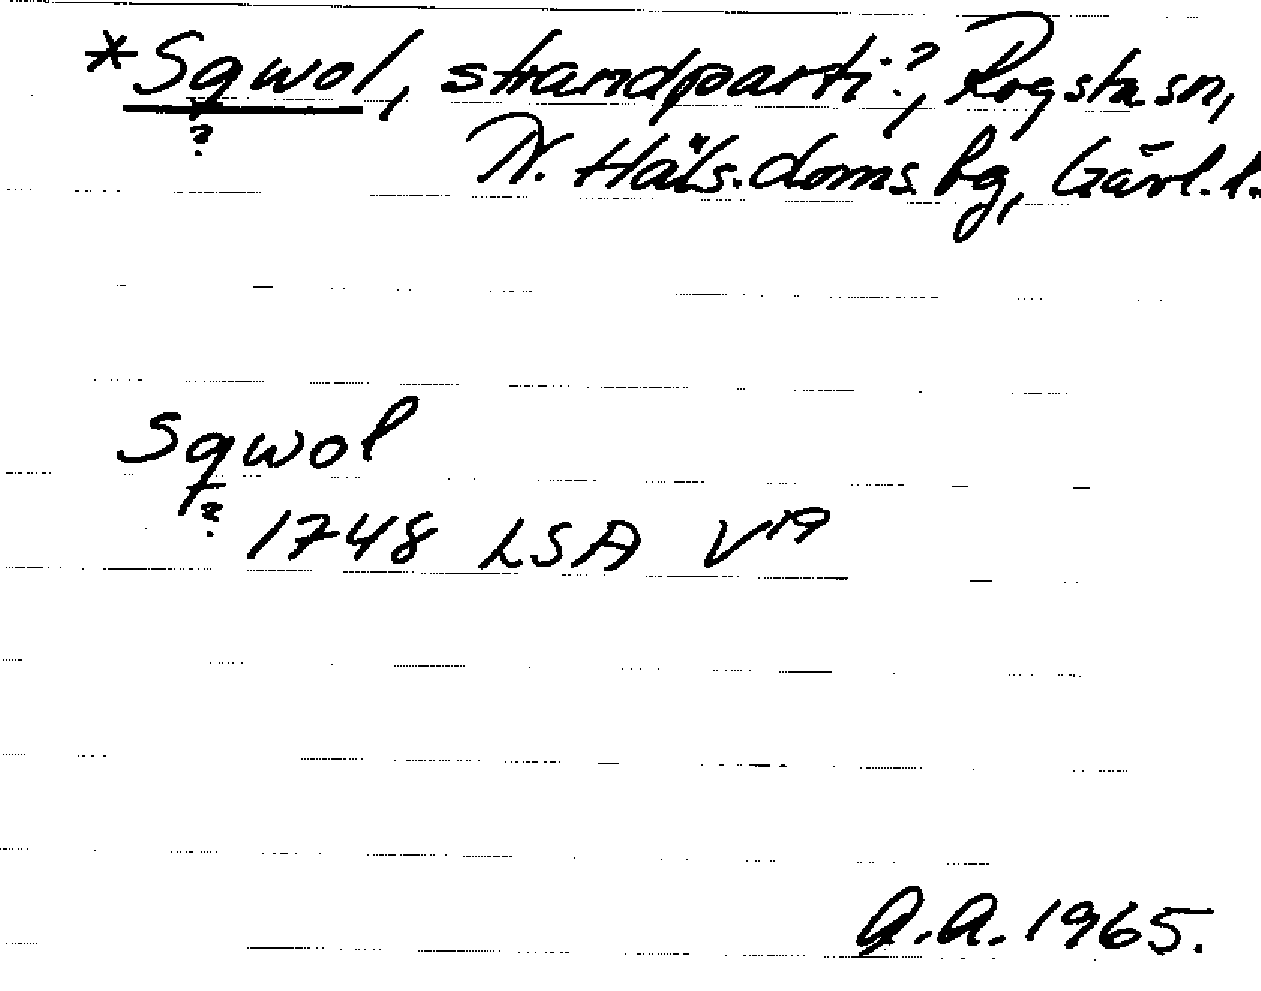 *Sqwol, strandparti?, Rogsta sn,
?
N. Häls. doms. hg, Gävl. l.
Sqwol
?
1748 LSA V19
A.A. 1965.